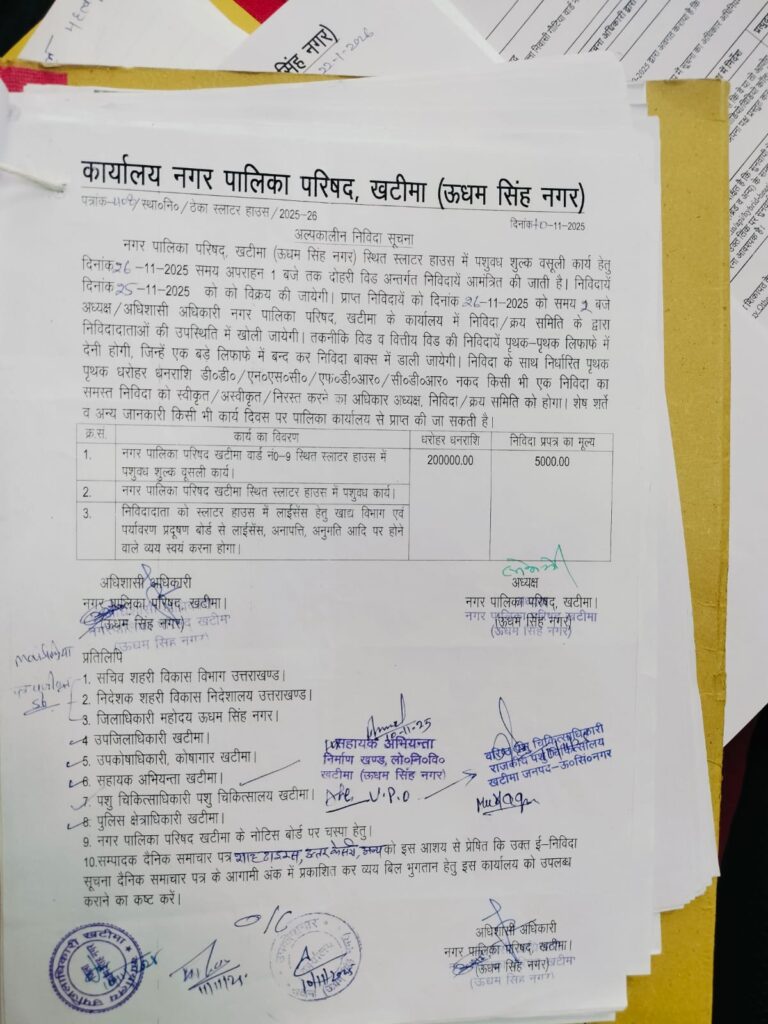 सिंह नगर)
22-1-2026
कार्यालय नगर पालिका परिषद, खटीमा (ऊधम सिंह नगर)
पत्रांक- /स्था०नि०/ठेका स्लाटर हाउस/2025-26
दिनांक 10-11-2025
अल्पकालीन निविदा सूचना
नगर पालिका परिषद, खटीमा (ऊधम सिंह नगर) स्थित स्लाटर हाउस में पशुवध शुल्क वसूली कार्य हेतु
दिनांक 26-11-2025 समय अपराहन 1 बजे तक दोहरी विड अन्तर्गत निविदायें आमंत्रित की जाती है। निविदायें
दिनांक 25-11-2025 को को विक्रय की जायेगी। प्राप्त निविदायें को दिनांक 26-11-2025 को समय 2 बजे
अध्यक्ष/अधिशासी अधिकारी नगर पालिका परिषद, खटीमा के कार्यालय में निविदा/क्रय समिति के द्वारा
निविदादाताओं की उपस्थिति में खोली जायेगी। तकनीकि विड व वित्तीय विड की निविदायें पृथक-पृथक लिफाफे में
देनी होगी, जिन्हें एक बड़े लिफाफे में बन्द कर निविदा बाक्स में डाली जायेगी। निविदा के साथ निर्धारित पृथक
पृथक धरोहर धनराशि डी०डी०/एन०एस०सी०/एफ०डी०आर०/सी०डी०आर० नकद किसी भी एक निविदा का
समस्त निविदा को स्वीकृत/अस्वीकृत/निरस्त करने का अधिकार अध्यक्ष, निविदा/क्रय समिति को होगा। शेष शर्ते
व अन्य जानकारी किसी भी कार्य दिवस पर पालिका कार्यालय से प्राप्त की जा सकती है।
क्र.सं. कार्य का विवरण धरोहर धनराशि निविदा प्रपत्र का मूल्य
1. नगर पालिका परिषद खटीमा वार्ड नं0-9 स्थित स्लाटर हाउस में 200000.00 5000.00
पशुवध शुल्क वूसली कार्य।
2. नगर पालिका परिषद खटीमा स्थित स्लाटर हाउस में पशुवध कार्य।
3. निविदादाता को स्लाटर हाउस में लाईसेंस हेतु खाद्य विभाग एवं
पर्यावरण प्रदूषण बोर्ड से लाईसेंस, अनापत्ति, अनुमति आदि पर होने
वाले व्यय स्वयं करना होगा।
अधिशासी अधिकारी
नगर पालिका परिषद, खटीमा।
(ऊधम सिंह नगर)
अध्यक्ष
नगर पालिका परिषद, खटीमा।
(ऊधम सिंह नगर)
प्रतिलिपि
1. सचिव शहरी विकास विभाग उत्तराखण्ड।
2. निदेशक शहरी विकास निदेशालय उत्तराखण्ड।
3. जिलाधिकारी महोदय ऊधम सिंह नगर।
4. उपजिलाधिकारी खटीमा।
5. उपकोषाधिकारी, कोषागार खटीमा।
6. सहायक अभियन्ता खटीमा।
7. पशु चिकित्साधिकारी पशु चिकित्सालय खटीमा।
8. पुलिस क्षेत्राधिकारी खटीमा।
9. नगर पालिका परिषद खटीमा के नोटिस बोर्ड पर चस्पा हेतु।
10. सम्पादक दैनिक समाचार पत्र शाह टाइम्स, उत्तर केसरी, अन्य को इस आशय से प्रेषित कि उक्त ई-निविदा
सूचना दैनिक समाचार पत्र के आगामी अंक में प्रकाशित कर व्यय बिल भुगतान हेतु इस कार्यालय को उपलब्ध
कराने का कष्ट करें।
10-11-25
सहायक अभियन्ता
निर्माण खण्ड, लो०नि०वि०
खटीमा (ऊधम सिंह नगर)
वरिष्ठ पशु चिकित्साधिकारी
राजकीय पशु चिकित्सालय
खटीमा जनपद-ऊ०सि०नगर
V.P.O
O/C
11/11/25
10/11/2025
अधिशासी अधिकारी
नगर पालिका परिषद, खटीमा।
(ऊधम सिंह नगर)
कार्यालय उपजिलाधिकारी खटीमा